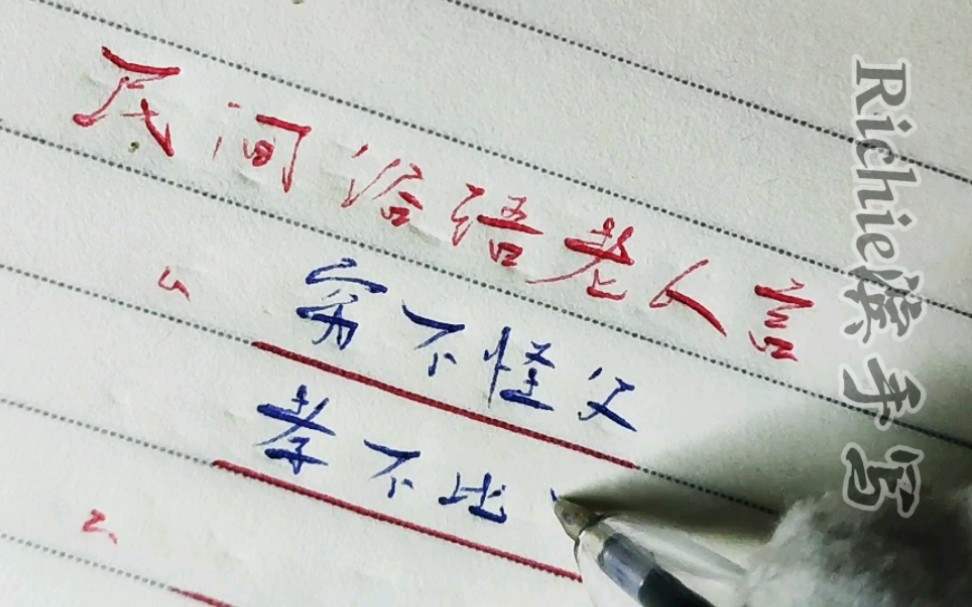 民间俗语老人言
1、穷不怪父
孝不比
2、
Richie溪手写